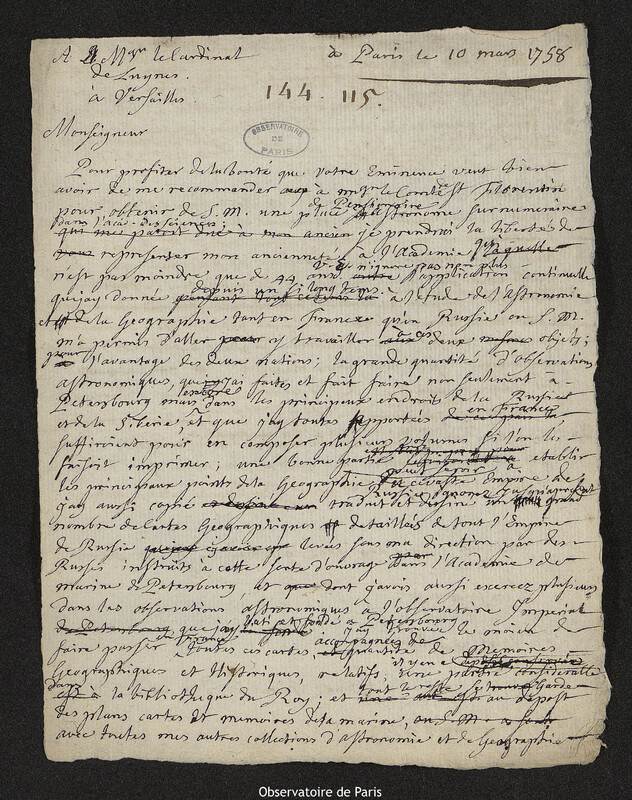 A Mgr le Cardinal
à Paris le 10 mars 1758
de Luynes.
à Versailles.
144. 115.
OBSERVATOIRE
DE
PARIS
Monseigneur
Pour profiter de la bonté que votre Eminence veut bien
avoir de me recommander à Mgr le Comte de St Florentin
de Pensionaire
pour obtenir de S. M. une place d'astronome surnumeraire
dans l'acad. des sciences
je prendrai la liberté de
representer mon ancienneté à l'Academie
n'est pas moindre que de 44 ans application continuelle
depuis un si long tems
que j'ay donné à l'etude de l'Astronomie
et de la Geographie tant en France qu'en Russie ou S. M.
m'a permis d'aller travailler à ces deux objets;
pour l'avantage des deux nations; la grande quantité d'observations
astronomiques, que j'ai faites et fait faire non seulement à
Petersbourg mais encore dans les principaux endroits de la Russie
et de la Siberie, et que j'ay toutes apportées en France
suffiroient pour en composer plusieurs volumes si l'on les
faisoit imprimer; une bonne partie
pour servir à etablir
les principaux points de la Geographie du vaste Empire de
Russie
j'ay aussi copié traduit et dessiné un grand
nombre de Cartes Geographiques detaillées de tout l'Empire
de Russie levées sous ma direction par des
Russes instruits à cette sorte d'ouvrage dans l'Academie de
marine de Petersbourg, et dont j'avois aussi exercez plusieurs
dans les observations astronomiques à l'observatoire Imperial
que j'ay bati et fondé à Petersbourg
j'ay trouvé le moien de
faire passer en France toutes ces cartes, accompagnées de
quantité de Memoires
Geographiques et Historiques, relatifs; il y en a une partie considerable
dans à la bibliotheque du Roy; et tout le reste se garde
au depost
des plans cartes et memoires de la marine,
avec toutes mes autres collections d'Astronomie et de Geographie
Observatoire de Paris